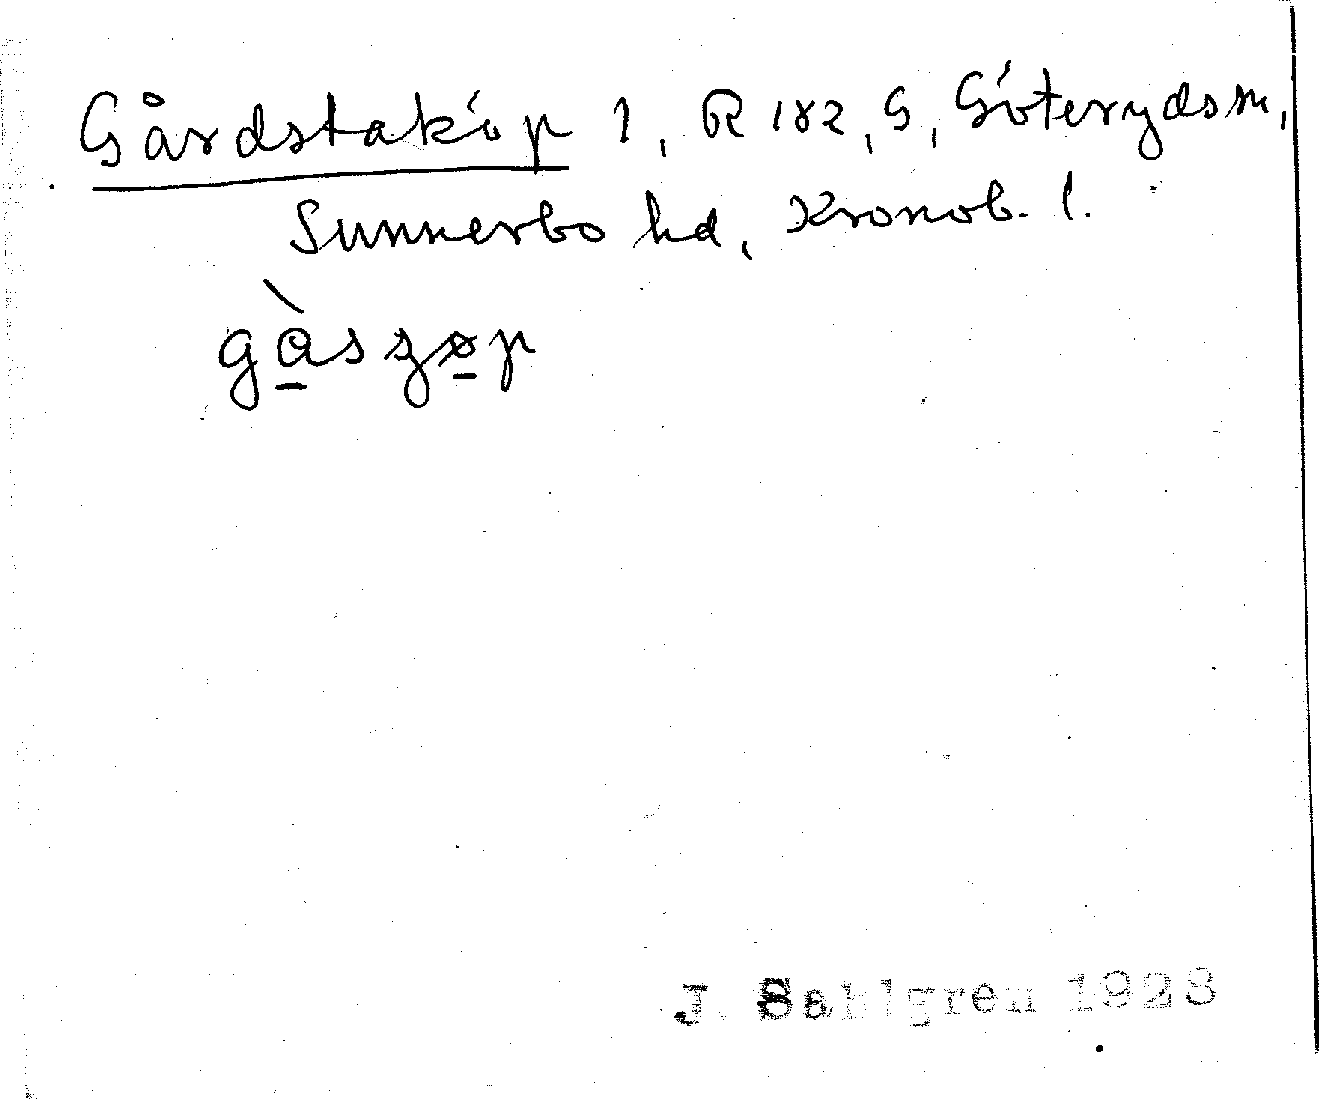 Gårdstaköp 1, R 182, G, Göteryds sn,
Sunnerbo hd, Kronob. l.
gàsʒøp
J. Sahlgren 1928